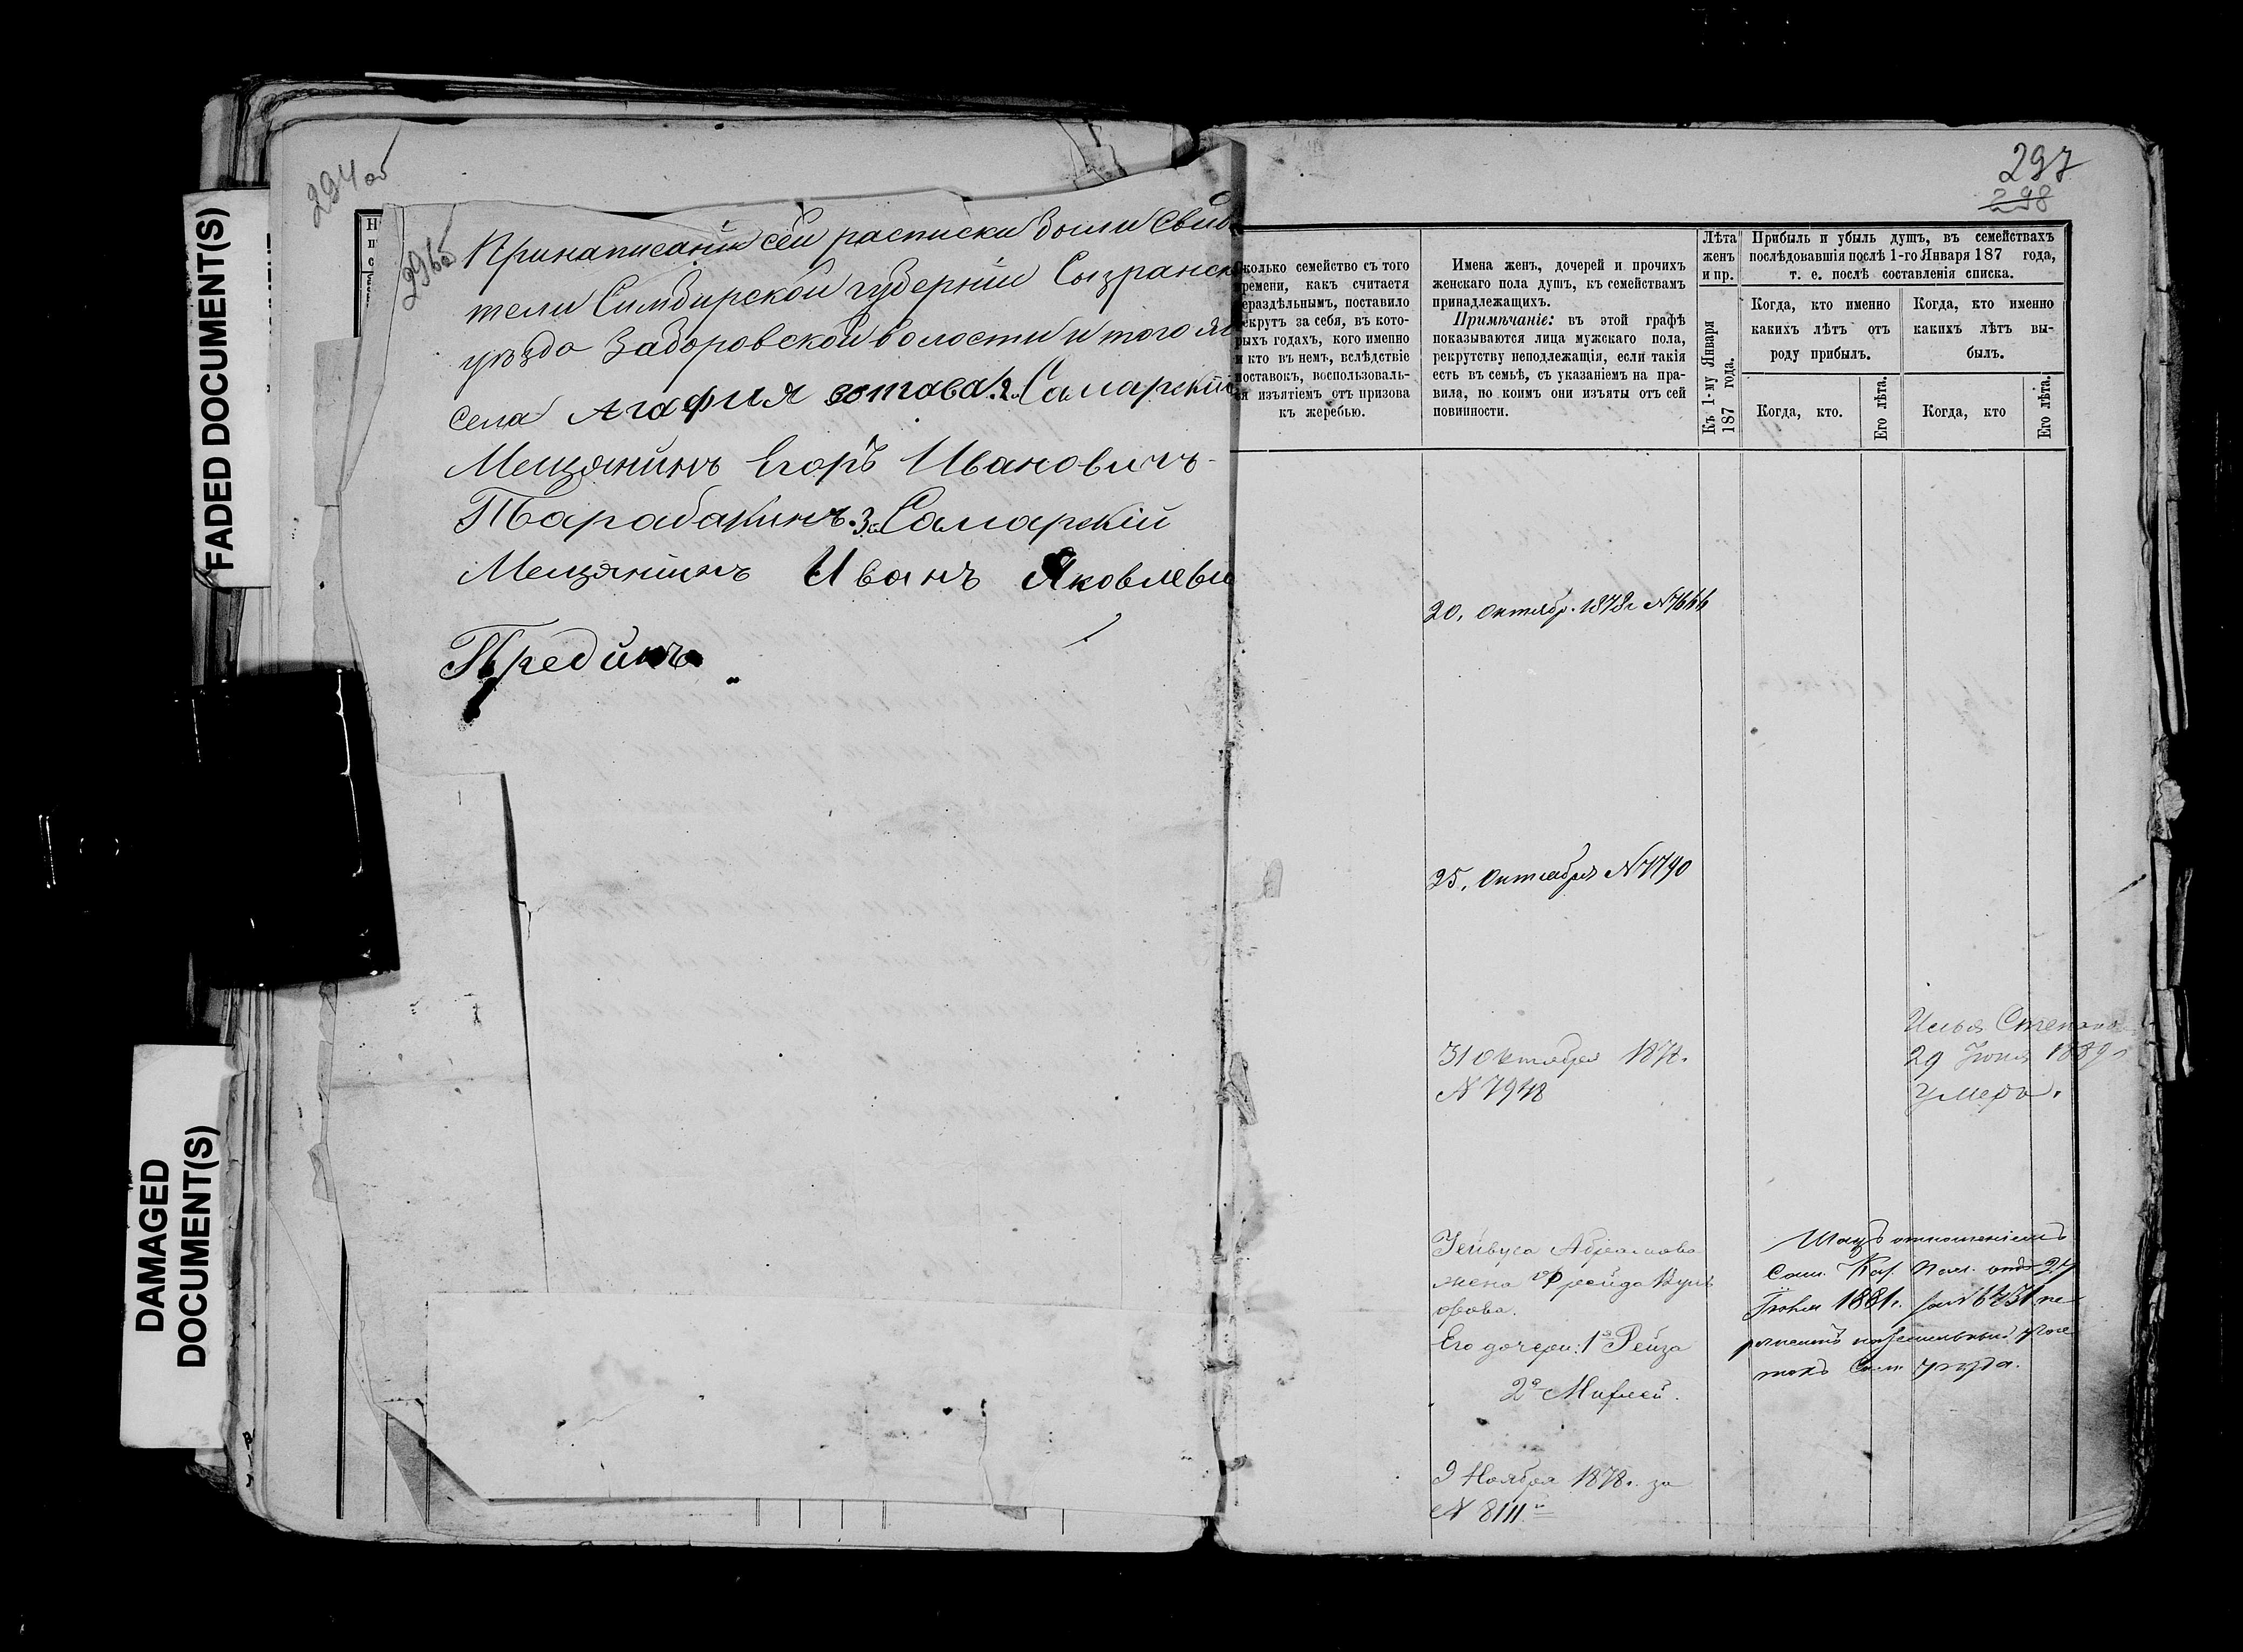 FADED DOCUMENT(S)
DAMAGED
DOCUMENT(S)
294 об
296 об
При написаніи сей расписки были Свидѣ
тели Симбирской губерніи Сызранск
уѣзда Заборовской волости и того же
села Агафия зотава. 2. Самарскій
Мещянинъ Егоръ Ивановичъ
Тарабакинъ. 3. Самарскій
Мещянинъ Иванъ Яковлеви
Прединъ
297
298
колько семейство съ того
времени, какъ считаетя
нераздѣльнымъ, поставило
рекрутъ за себя, въ кото-
рыхъ годахъ, кого именно
и кто въ немъ, вслѣдствіе
поставокъ, воспользоваль-
ся изъятіемъ отъ призова
къ жеребью.
Имена женъ, дочерей и прочихъ
женскаго пола душъ, къ семействамъ
принадлежащихъ.
Примѣчаніе: въ этой графѣ
показываются лица мужскаго пола,
рекрутству неподлежащія, если такія
есть въ семьѣ, съ указаніемъ на пра-
вила, по коимъ они изъяты отъ сей
повинности.
Лѣта
женъ
и пр.
Къ 1-му Января
187 года.
Прибыль и убыль душъ, въ семействахъ
послѣдовавшія послѣ 1-го Января 187 года,
т. е. послѣ составленія списка.
Когда, кто именно
какихъ лѣтъ отъ
роду прибылъ.
Когда, кто именно
какихъ лѣтъ вы-
былъ.
Когда, кто.
Его лѣта.
Когда, кто
Его лѣта.
20, Октябр. 1878 г №7666
25, Октября №7790
31 Октября 1878.
№ 7948
Илья Степано
29 Іюня 1889 г
умеръ.
Абрамова
жена Фрейда
Его дочери: 1я Рейза
2я
отношеніемъ
Сам. Каз. Пал. отъ 27
Іюня 1881 г. за №
Сам уѣзда.
9 Ноября 1878 г. за
№ 8111